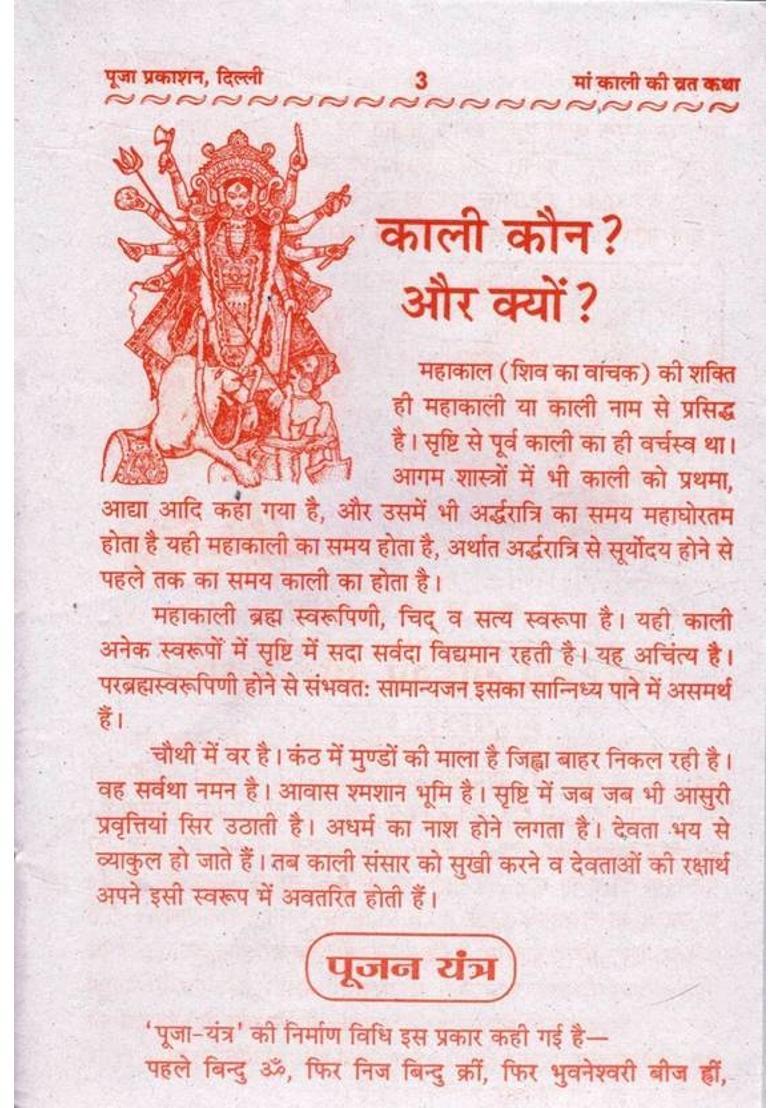 पूजा प्रकाशन, दिल्ली 3 मां काली की व्रत कथा
काली कौन?
और क्यों?
महाकाल (शिव का वाचक) की शक्ति
ही महाकाली या काली नाम से प्रसिद्ध
है। सृष्टि से पूर्व काली का ही वर्चस्व था।
आगम शास्त्रों में भी काली को प्रथमा,
आद्या आदि कहा गया है, और उसमें भी अर्द्धरात्रि का समय महाघोरतम
होता है यही महाकाली का समय होता है, अर्थात अर्द्धरात्रि से सूर्योदय होने से
पहले तक का समय काली का होता है।
महाकाली ब्रह्म स्वरूपिणी, चिद् व सत्य स्वरूपा है। यही काली
अनेक स्वरूपों में सृष्टि में सदा सर्वदा विद्यमान रहती है। यह अचिंत्य है।
परब्रह्मस्वरूपिणी होने से संभवतः सामान्यजन इसका सान्निध्य पाने में असमर्थ
हैं।
चौथी में वर है। कंठ में मुण्डों की माला है जिह्वा बाहर निकल रही है।
वह सर्वथा नमन है। आवास श्मशान भूमि है। सृष्टि में जब जब भी आसुरी
प्रवृत्तियां सिर उठाती है। अधर्म का नाश होने लगता है। देवता भय से
व्याकुल हो जाते हैं। तब काली संसार को सुखी करने व देवताओं की रक्षार्थ
अपने इसी स्वरूप में अवतरित होती हैं।
पूजन यंत्र
'पूजा-यंत्र' की निर्माण विधि इस प्रकार कही गई है—
पहले बिन्दु ॐ, फिर निज बिन्दु क्रीं, फिर भुवनेश्वरी बीज ह्रीं,